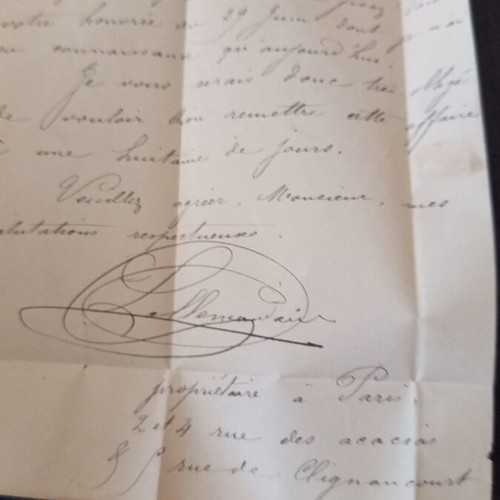 votre honorée du 29 Juin dont je n'ai
connaissance qu'aujourd'hui.
Je vous serais donc très obligé
de vouloir bien remettre cette affaire
à une huitaine de jours.
Veuillez agréer, Monsieur, mes
salutations respectueuses.
propriétaire à Paris,
2 et 4 rue des acacias
& rue de Clignancourt